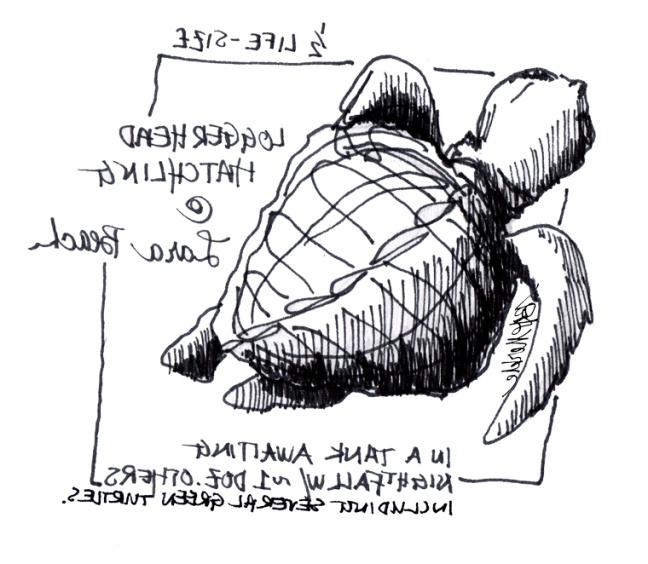 ½ LIFE-SIZE
LOGGERHEAD
HATCHLING
@
Lara Beach
IN A TANK AWAITING
NIGHTFALL W/ ~1 DOZ. OTHERS
INCLUDING SEVERAL GREEN TURTLES.